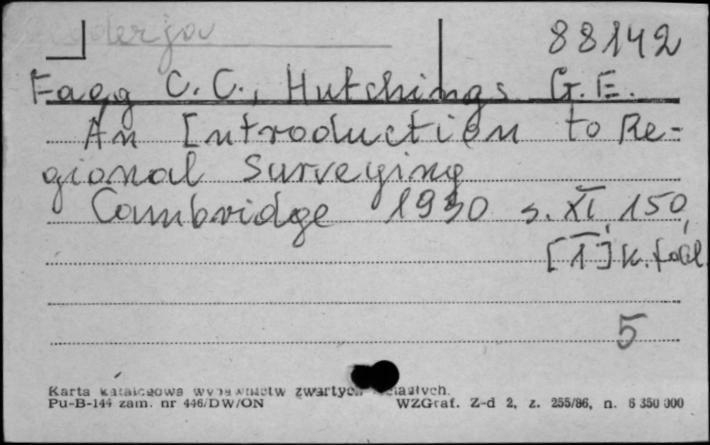 88142
Fagg C. C., Hutchings G. E.
An Introduction to Re=
gional Surveying
Cambridge 1930 s. XI, 150,
[1] k.
5
Karta katalogowa wydawnictw zwartych
Pu-B-144 zam. nr 446/DW/ON WZGraf. Z-d 2, z. 255/86, n. 6 350 000